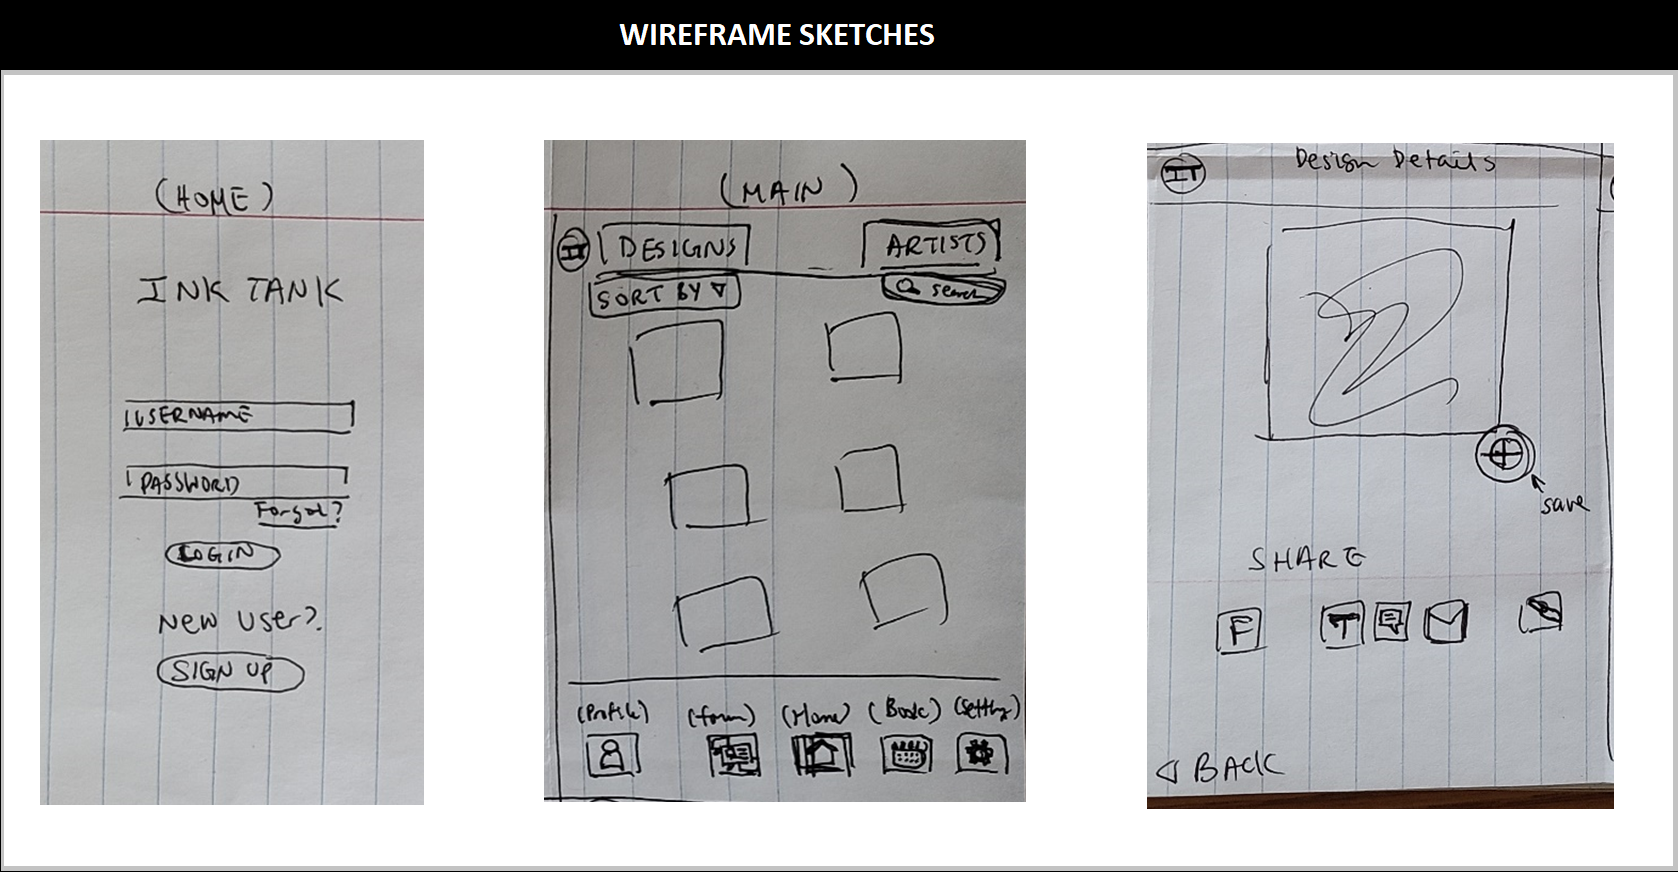 WIREFRAME SKETCHES
(HOME)
INK TANK
USERNAME
PASSWORD
Forgot?
LOGIN
New User?
SIGN UP
(MAIN)
IT DESIGNS ARTISTS
SORT BY search
(Profile) (Forum) (Home) (Book) (Setting)
IT Design Details
save
SHARE
F T
BACK